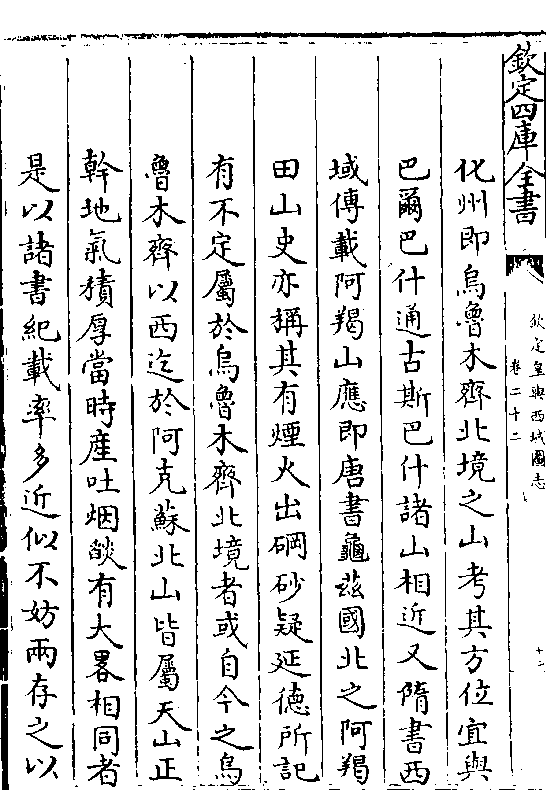 欽定四庫全書
欽定皇輿西域圖志
卷二十二
化州即烏魯木齊北境之山考其方位宜與
巴爾巴什通古斯巴什諸山相近又隋書西
域傳載阿羯山應即唐書龜茲國北之阿羯
田山史亦稱其有煙火出硇砂疑延德所記
有不定屬於烏魯木齊北境者或自今之烏
魯木齊以西迄於阿克蘇北山皆屬天山正
幹地氣積厚當時產吐烟燄有大畧相同者
是以諸書紀載率多近似不妨兩存之以